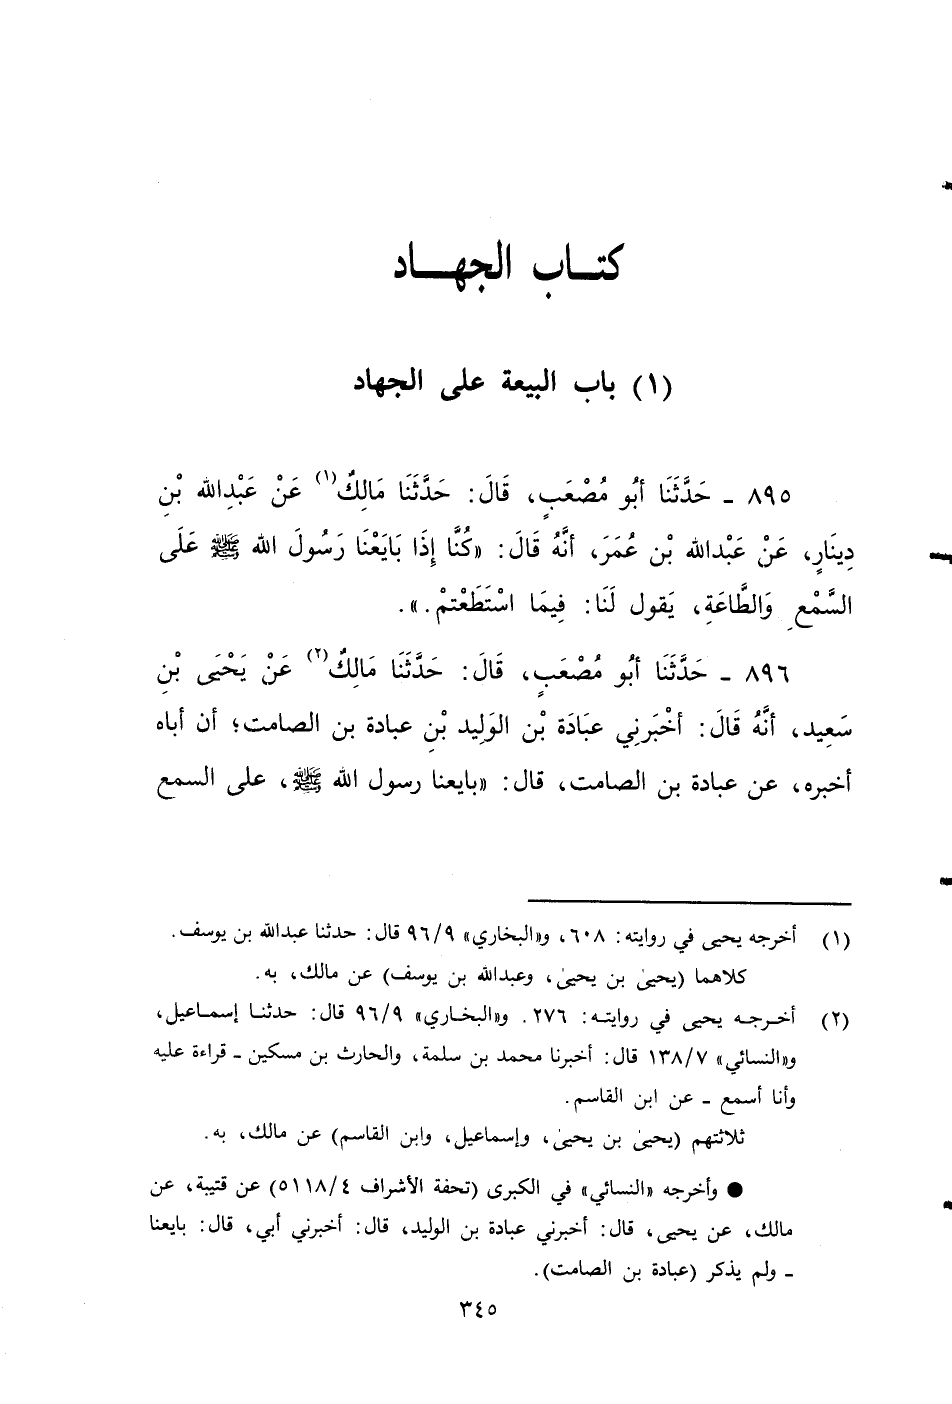 كتاب الجهاد
(١) باب البيعة على الجهاد
٨٩٥ ـ حَدَّثَنَا أبُو مُصْعَبٍ، قَالَ: حَدَّثَنَا مَالِكٌ(١) عَنْ عَبْدِالله بْنِ
دِينَارٍ، عَنْ عَبْدالله بْنِ عُمَرَ، أنَّهُ قَالَ: «كُنَّا إِذَا بَايَعْنَا رَسُولَ الله ﷺ عَلَى
السَّمْعِ وَالطَّاعَةِ، يَقول لَنَا: فِيمَا اسْتَطَعْتمْ.».
٨٩٦ ـ حَدَّثَنَا أبُو مُصْعَبٍ، قَالَ: حَدَّثَنَا مَالِكٌ(٢) عَنْ يَحْيَى بْنِ
سَعِيد، أنَّهُ قَالَ: أخْبَرنِي عبَادَة بْن الوَلِيد بْنِ عبادة بن الصامت؛ أن أباه
أخبره، عن عبادة بن الصامت، قال: «بايعنا رسول الله ﷺ، على السمع
(١) أخرجه يحيى في روايته: ٦٠٨، و«البخاري» ٩/ ٩٦ قال: حدثنا عبدالله بن يوسف.
كلاهما (يحيىٰ بن يحيىٰ، وعبدالله بن يوسف) عن مالك، به.
(٢) أخرجه يحيى في روايته: ٢٧٦. و«البخاري» ٩/ ٩٦ قال: حدثنا إسماعيل،
و«النسائي» ٧/ ١٣٨ قال: أخبرنا محمد بن سلمة، والحارث بن مسكين ـ قراءة عليه
وأنا أسمع ـ عن ابن القاسم.
ثلاثتهم (يحيىٰ بن يحيىٰ، وإسماعيل، وابن القاسم) عن مالك، به.
● وأخرجه «النسائي» في الكبرى (تحفة الأشراف ٤/ ٥١١٨) عن قتيبة، عن
مالك، عن يحيى، قال: أخبرني عبادة بن الوليد، قال: أخبرني أبي، قال: بايعنا
ـ ولم يذكر (عبادة بن الصامت).
٣٤٥